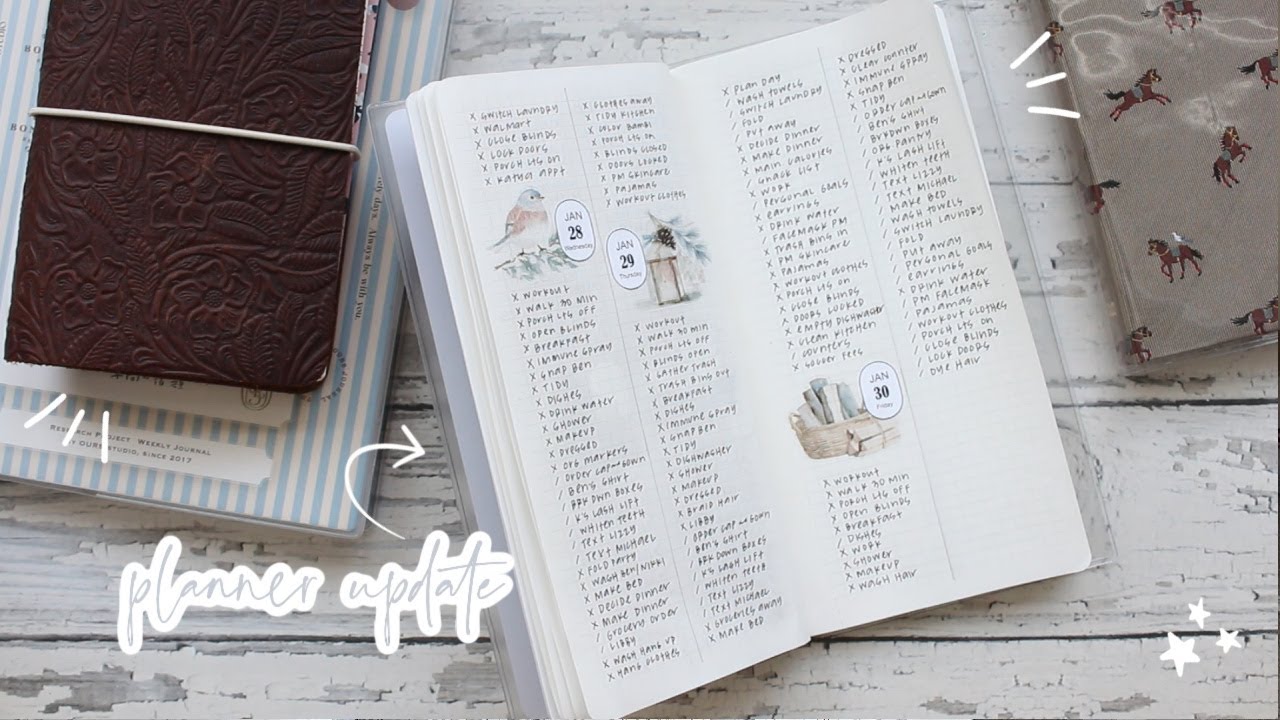 x SWITCH LAUNDRY
x WALMART
x CLOSE BLINDS
x LOCK DOORS
x PORCH LTS ON
x KATHCI APPT
JAN
28
Wednesday
x WORKOUT
x WALK 30 MIN
x PORCH LTS OFF
x OPEN BLINDS
x BREAKFAST
x IMMUNE SPRAY
x SNAP BEN
x TIDY
x DISHES
x DRINK WATER
x SHOWER
x MAKEUP
x DRESSED
x ORG MARKERS
/ ORDER CAP → GOWN
/ BEN'S SHIRT
/ BRK DOWN BOXES
/ K'S LASH LIFT
/ WHITEN TEETH
/ TEXT LIZZY
/ TEXT MICHAEL
x FOLD PARTY
x WASH BEN/NIKKI
x MAKE BED
x DECIDE DINNER
x MAKE DINNER
/ GROCERY ORDER
/ LIBBY
x WASH HANG UP
x HANG CLOTHES
x CLOTHES AWAY
x TIDY KITCHEN
x COLOR BAMBI
x PORCH LTS ON
x BLINDS CLOSED
x DOORS LOCKED
x PM SKINCARE
x PAJAMAS
x WORKOUT CLOTHES
JAN
29
Thursday
x WORKOUT
x WALK 30 MIN
x PORCH LTS OFF
x BLINDS OPEN
x GATHER TRASH
x TRASH BINS OUT
x BREAKFAST
x DISHES
x IMMUNE SPRAY
x SNAP BEN
x TIDY
x DISHWASHER
x SHOWER
x MAKEUP
x DRESSED
x BRAID HAIR
x LIBBY
/ ORDER CAP → GOWN
/ BEN'S SHIRT
/ BRK DOWN BOXES
/ K'S LASH LIFT
/ WHITEN TEETH
/ TEXT LIZZY
/ TEXT MICHAEL
x GROCERIES AWAY
x MAKE BED
x PLAN DAY
/ WASH TOWELS
/ SWITCH LAUNDRY
/ FOLD
/ PUT AWAY
x DECIDE DINNER
x MAKE DINNER
x MAIN CALORIES
/ SNACK LIST
x WORK
/ PERSONAL GOALS
x EARRINGS
x DRINK WATER
/ FACEMASK PM
x TRASH BINS IN
x PM SKINCARE
x PAJAMAS
x WORKOUT CLOTHES
x PORCH LTS ON
x CLOSE BLINDS
x DOORS LOCKED
x EMPTY DISHWASHER
x CLEAN KITCHEN
COUNTERS
x COLOR FEES
JAN
30
Friday
x WORKOUT
x WALK 30 MIN
x PORCH LTS OFF
x OPEN BLINDS
x BREAKFAST
x DISHES
x WORK
x SHOWER
x MAKEUP
x WASH HAIR
x DRESSED
x CLEAR COUNTER
x IMMUNE SPRAY
x SNAP BEN
x TIDY
/ ORDER CAP → GOWN
/ BEN'S SHIRT
/ BRKDWN BOXES
/ ORG PANTRY
/ K'S LASH LIFT
/ WHITEN TEETH
/ TEXT LIZZY
/ TEXT MICHAEL
/ MAKE BED
/ WASH TOWELS
/ SWITCH LAUNDRY
/ FOLD
/ PUT AWAY
/ PERSONAL GOALS
/ EARRINGS
/ DRINK WATER
/ PM FACEMASK
/ PAJAMAS
/ WORKOUT CLOTHES
/ PORCH LTS ON
/ CLOSE BLINDS
/ LOCK DOORS
/ DYE HAIR
ely days. Always be with you.
RESEARCH PROJECT WEEKLY JOURNAL
BY OURS STUDIO, SINCE 2017
planner update